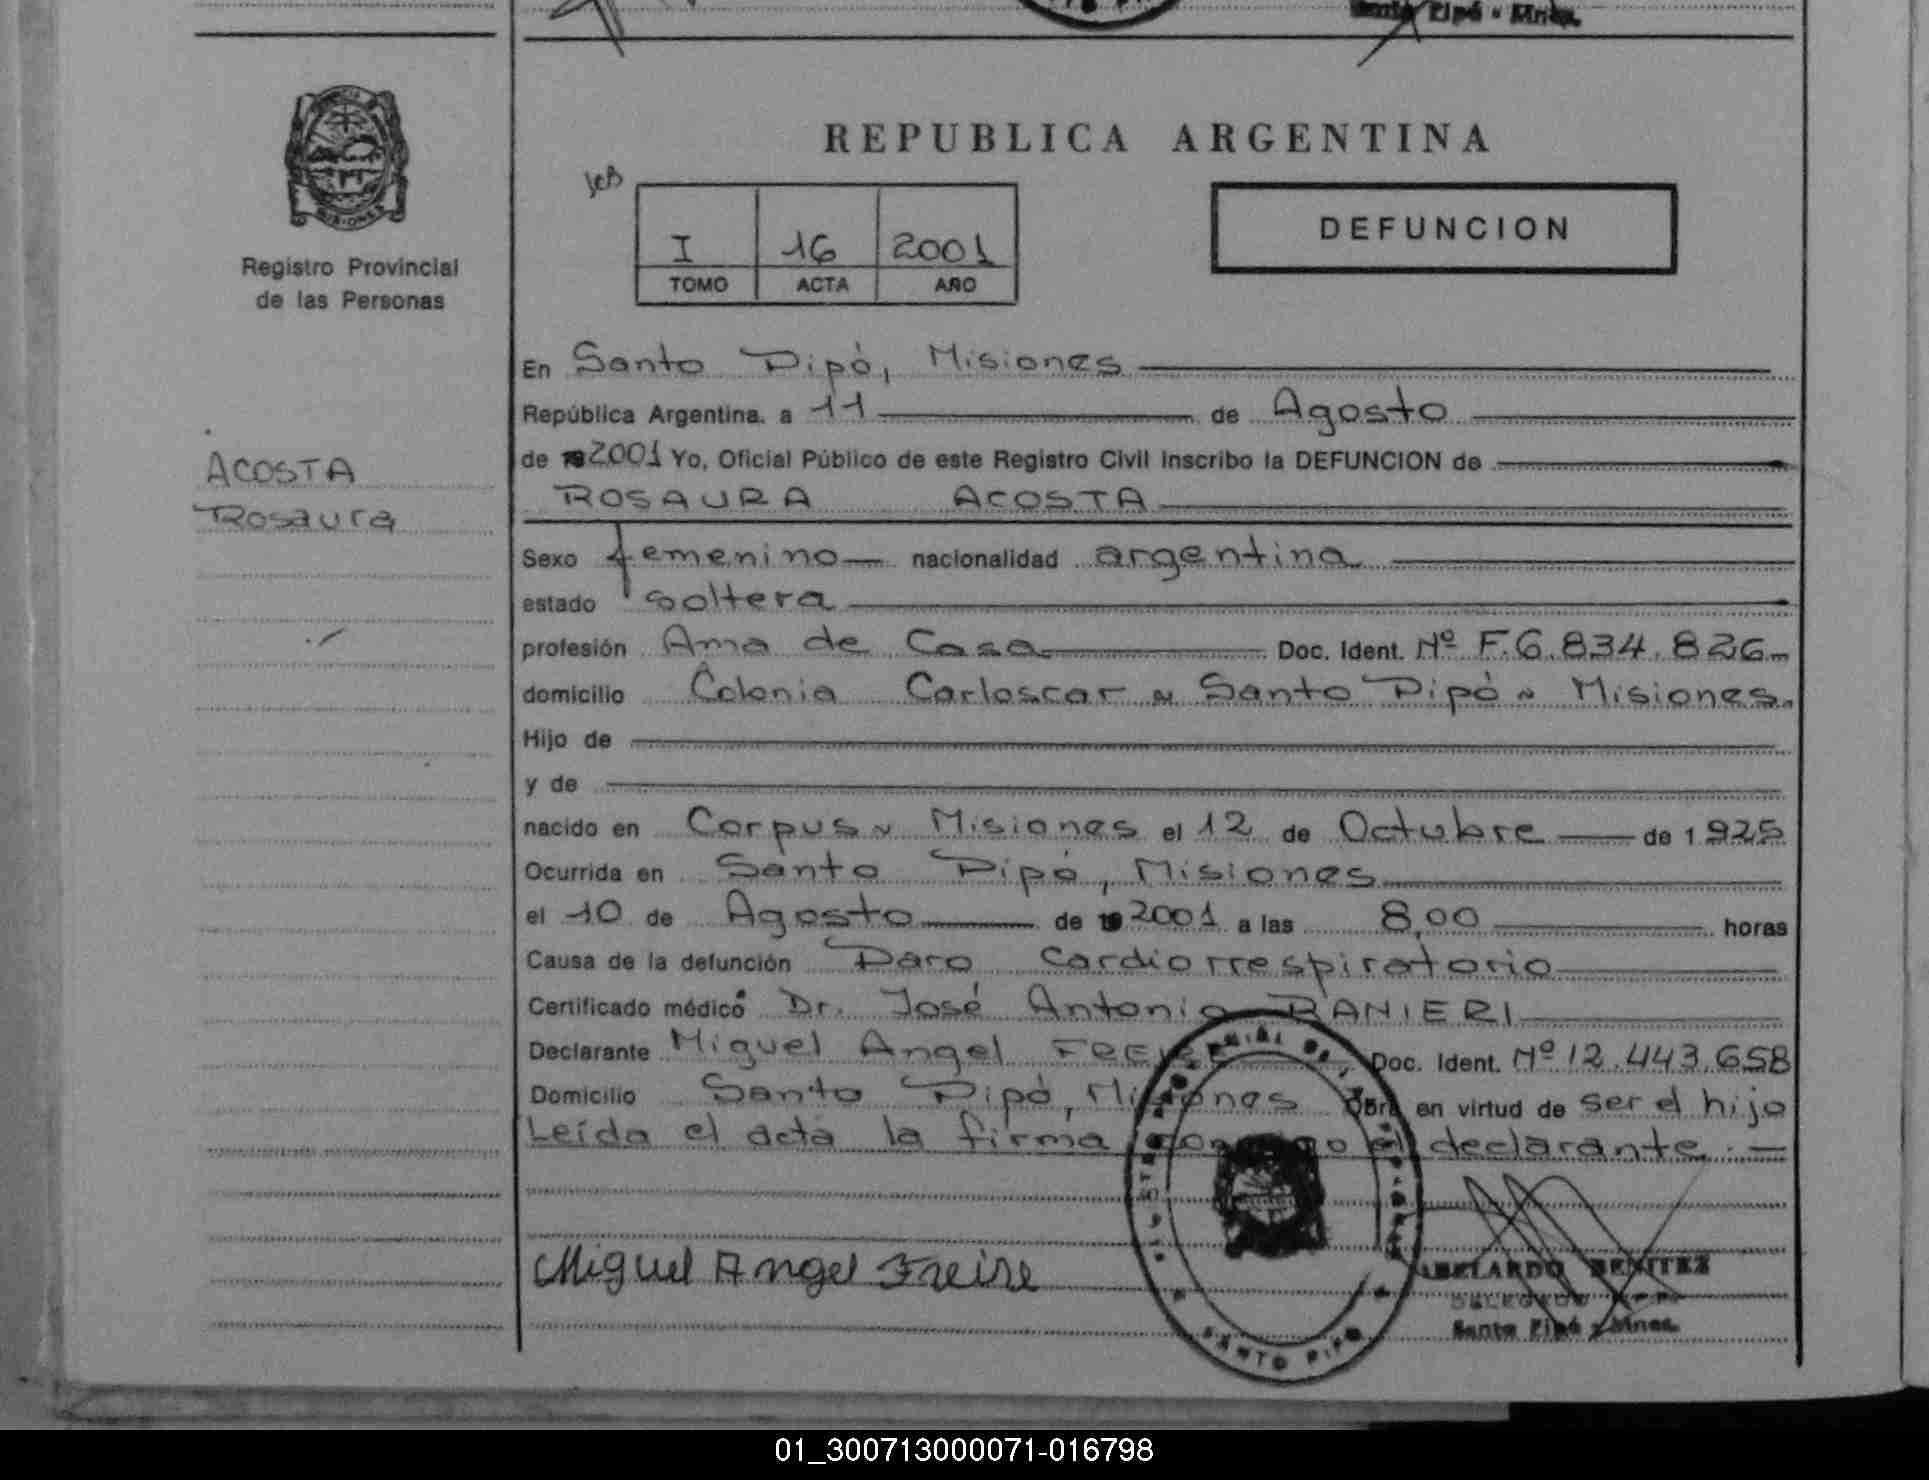 Santo Pipó - Mnes.
REPUBLICA ARGENTINA
DEFUNCION
I 16 2001
TOMO ACTA AÑO
MISIONES
Registro Provincial
de las Personas
ACOSTA
Rosaura
En Santo Pipó, Misiones
República Argentina, a 11 de Agosto
de 2001 Yo, Oficial Público de este Registro Civil inscribo la DEFUNCION de
ROSAURA ACOSTA
Sexo femenino nacionalidad argentina
estado soltera
profesión Ama de Casa Doc. Ident. Nº F.6.834.826
domicilio Colonia Carloscar ~ Santo Pipó ~ Misiones.
Hijo de
y de
nacido en Corpus ~ Misiones el 12 de Octubre de 1.925
Ocurrida en Santo Pipó, Misiones
el 10 de Agosto de 2001 a las 8,00 horas
Causa de la defunción Paro Cardiorrespiratorio
Certificado médico Dr. José Antonio RANIERI
Declarante Miguel Angel FREIRE Doc. Ident. Nº 12.443.658
Domicilio Santo Pipó, Misiones Obra en virtud de ser el hijo
Leída el acta la firma conmigo el declarante.
Miguel Angel Freire
ABELARDO BENITEZ
DELEGADO
Santo Pipó - Mnes.
SANTO PIPO
01_300713000071-016798